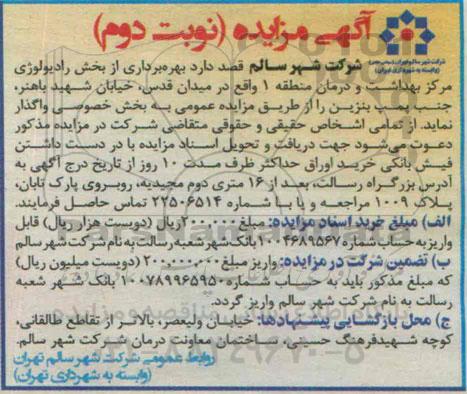 آگهی مزایده (نوبت دوم)
شرکت شهر سالم تهران (سهامی خاص)
(وابسته به شهرداری تهران)
شرکت شهر سالم قصد دارد بهره‌برداری از بخش رادیولوژی
مرکز بهداشت و درمان منطقه ۱ واقع در میدان قدس، خیابان شهید باهنر،
جنب پمپ بنزین را از طریق مزایده عمومی به بخش خصوصی واگذار
نماید. از تمامی اشخاص حقیقی و حقوقی متقاضی شرکت در مزایده مذکور
دعوت می‌شود جهت دریافت و تحویل اسناد مزایده با در دست داشتن
فیش بانکی خرید اوراق حداکثر ظرف مدت ۱۰ روز از تاریخ درج آگهی به
آدرس بزرگراه رسالت، بعد از ۱۶ متری دوم مجیدیه، روبروی پارک تابان،
پلاک ۱۰۰۹ مراجعه و یا با شماره ۲۲۵۰۶۵۱۴ تماس حاصل فرمایند.
الف) مبلغ خرید اسناد مزایده: مبلغ ۲۰۰/۰۰۰ ریال (دویست هزار ریال) قابل
واریز به حساب شماره ۱۰۰۴۶۸۹۵۶۷ بانک شهر شعبه رسالت به نام شرکت شهر سالم
ب) تضمین شرکت در مزایده: واریز مبلغ ۲۰۰/۰۰۰/۰۰۰ (دویست میلیون ریال)
که مبلغ مذکور باید به حساب شماره ۱۰۰۷۸۹۹۶۵۹۵۰ بانک شهر شعبه
رسالت به نام شرکت شهر سالم واریز گردد.
ج) محل بازگشایی پیشنهادها: خیابان ولیعصر، بالاتر از تقاطع طالقانی،
کوچه شهید فرهنگ حسینی، ساختمان معاونت درمان شرکت شهر سالم.
روابط عمومی شرکت شهر سالم تهران
(وابسته به شهرداری تهران)